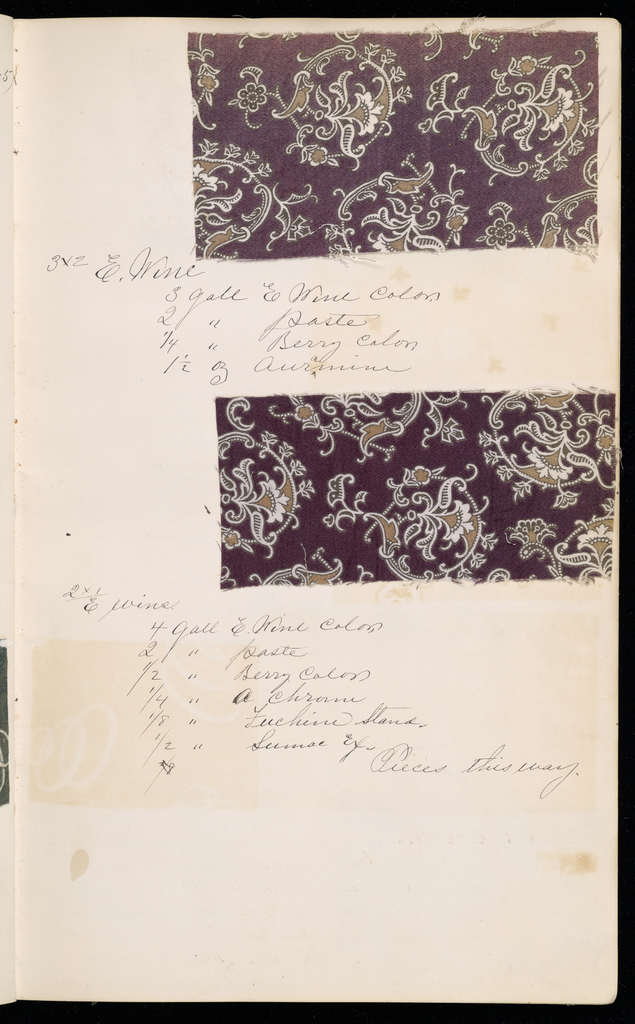 3x2 E. Wine
3 gall E Wine Color
2 " paste
1/4 " Berry Color
1 1/2 oz Aurmine
2x1
E wine
4 gall E. Wine Color
2 " paste
1/2 " Berry Color
1/4 " A Chrome
1/8 " Fuchine Stand.
1/2 " Sumac Ex.
Pieces this way.